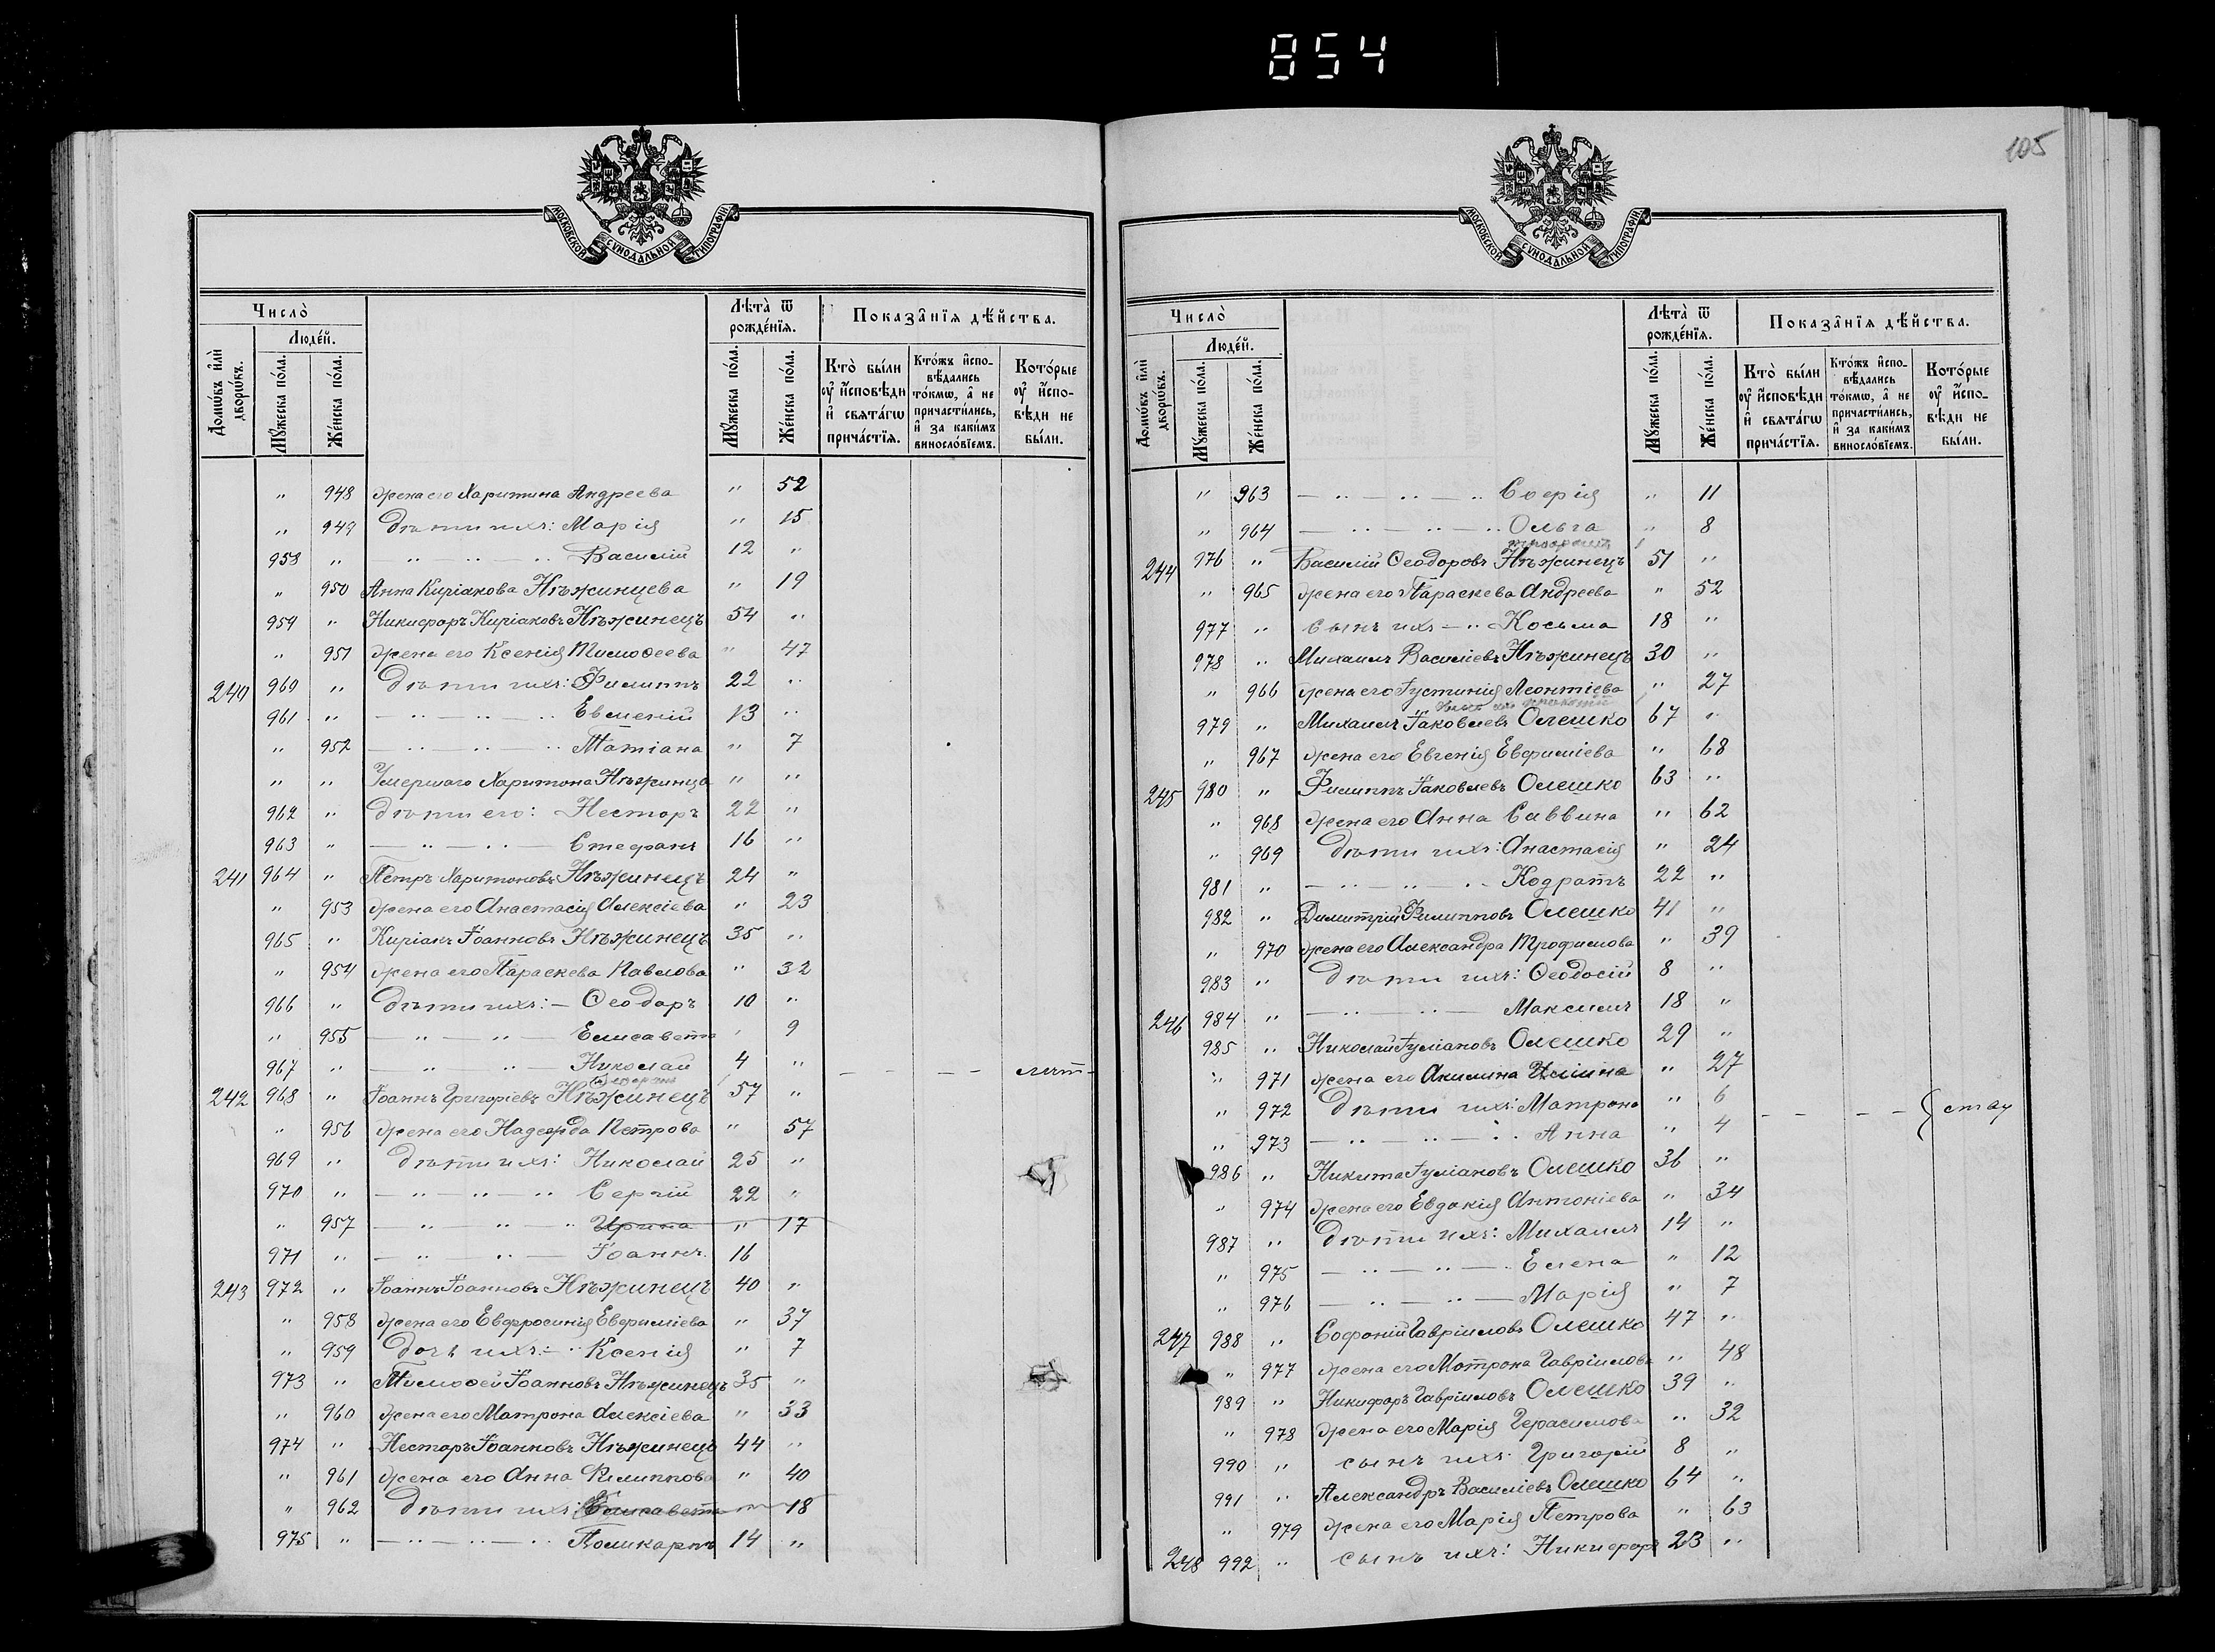 854
105
МОСКОВСКОЙ СѴНОДАЛЬНОЙ ТИПОГРАФІИ
Число̀
Людéй.
Лѣта̀ ѿ рождéнїѧ.
Показа̂нїѧ дѣ́йства.
Домѡ́въ и҆лѝ дворѡ́въ.
Мꙋ́жеска по́ла.
Же́нска по́ла.
Мꙋ́жеска по́ла.
Же́нска по́ла.
Кто̀ бы́ли ᲂу҆ и҆́сповѣди и҆ свѧта́гѡ прича́стїѧ.
Кто́жъ и҆спо-вѣ́дались то́кмѡ, а҆ не причасти́лись, и҆ за каки́мъ виносло́вїемъ.
Кото́рые ᲂу҆ и҆́спо-вѣди не бы́ли.
" 948 жена его Харитина Андреева " 52
" 949 дѣти ихъ: Марія " 15
958 " — " — " — " Василій 12 "
" 950 Анна Киріакова Нѣжинцева " 19
959 " Никифоръ Киріаковъ Нѣжинецъ 54 "
" 951 жена его Ксенія Тимоѳеева " 47
240 960 " дѣти ихъ: Филиппъ 22 "
961 " — " — " — " Евмений 13 "
" 952 — " — " — " Татіана " 7
" " Умершаго Харитона Нѣжинца " "
962 " дѣти его: Несторъ 22 "
963 " — " — " — Стефанъ 16 "
241 964 " Петръ Харитоновъ Нѣжинецъ 24 "
" 953 жена его Анастасія Алексіева " 23
965 " Киріакъ Іоанновъ Нѣжинецъ 35 "
" 954 жена его Параскева Павлова " 32
966 " дѣти ихъ: — Ѳеодоръ 10 "
" 955 — " — " — Елисавета " 9
967 " — " — " — Николай 4 " — — — —
242 968 " Іоаннъ Григоріевъ Нѣжинецъ 57 "
" 956 жена его Надежда Петрова " 57
969 " дѣти ихъ: Николай 25 "
970 " — " — " — " Сергій 22 "
" 957 — " — " — " Ирина " 17
971 " — " — " — Іоаннъ 16
243 972 " Іоаннъ Іоанновъ Нѣжинецъ 40 "
" 958 жена его Евфросинія Евфиміева " 37
" 959 дочь ихъ: — " Ксенія " 7
973 " Тимоѳей Іоанновъ Нѣжинецъ 35 "
" 960 жена его Матрона Алексіева " 33
974 " Несторъ Іоанновъ Нѣжинецъ 44 "
" 961 жена его Анна Филиппова " 40
" 962 дѣти ихъ: Елисавета " 18
975 " — " — " — " Поликарпъ 14 "
МОСКОВСКОЙ СѴНОДАЛЬНОЙ ТИПОГРАФІИ
Число̀
Людéй.
Лѣта̀ ѿ рождéнїѧ.
Показа̂нїѧ дѣ́йства.
Домѡ́въ и҆лѝ дворѡ́въ.
Мꙋ́жеска по́ла.
Же́нска по́ла.
Мꙋ́жеска по́ла.
Же́нска по́ла.
Кто̀ бы́ли ᲂу҆ и҆́сповѣди и҆ свѧта́гѡ прича́стїѧ.
Кто́жъ и҆спо-вѣ́дались то́кмѡ, а҆ не причасти́лись, и҆ за каки́мъ виносло́вїемъ.
Кото́рые ᲂу҆ и҆́спо-вѣди не бы́ли.
" 963 — " — " — " Софія " 11
" 964 — " — " — " Ольга " 8
244 976 " Василій Ѳеодоровъ Нѣжинецъ 51 "
" 965 жена его Параскева Андреева " 52
977 " сынъ ихъ — " Косьма 18 "
978 " Михаилъ Василіевъ Нѣжинецъ 30 "
" 966 жена его Іустинія Леонтіева " 27
979 " Михаилъ Іаковлевъ Олешко 67 "
" 967 жена его Евгенія Евфиміева " 68
245 980 " Филиппъ Іаковлевъ Олешко 63 "
" 968 жена его Анна Саввина " 62
" 969 дѣти ихъ: Анастасія " 24
981 " — " — " — " Кодратъ 22 "
982 " Димитрій Филипповъ Олешко 41 "
" 970 жена его Александра Трофимова " 39
983 " дѣти ихъ: Ѳеодосій 8 "
246 984 " — " — " — Максимъ 18 "
985 " Николай Іуліановъ Олешко 29 "
" 971 жена его Акилина Иліина " 27
" 972 дѣти ихъ: Матрона " 6
" 973 — " — " — " Анна " 4
986 " Никита Іуліановъ Олешко 36 "
" 974 жена его Евдокія Антоніева " 34
987 " дѣти ихъ: Михаилъ 14 "
" 975 — " — " — Елена " 12
" 976 — " — " — Марія " 7
247 988 " Софоній Гавріиловъ Олешко 47 "
" 977 жена его Матрона Гавріилова " 48
989 " Никифоръ Гавріиловъ Олешко 39 "
" 978 жена его Марія Герасимова " 32
990 " сынъ ихъ: Григорій 8 "
991 " Александръ Василіевъ Олешко 64 "
" 979 жена его Марія Петрова " 63
248 992 " сынъ ихъ: Никифоръ 23 "